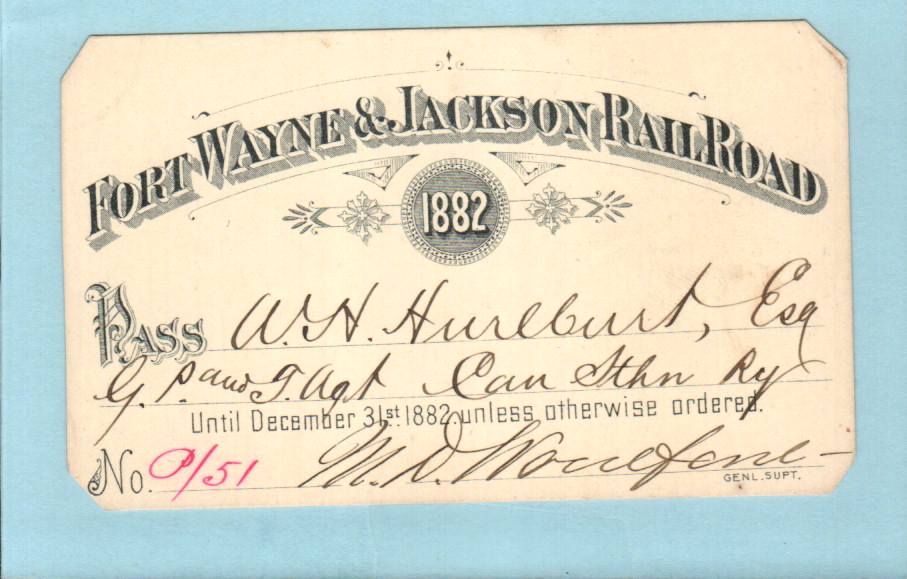 FORT WAYNE & JACKSON RAILROAD
1882
PASS W. H. Hurlburt, Esq
G. P. and T. Agt Can Sthn Ry
Until December 31st. 1882. unless otherwise ordered.
No. P/51 M. D. Woodford
GENL. SUPT.